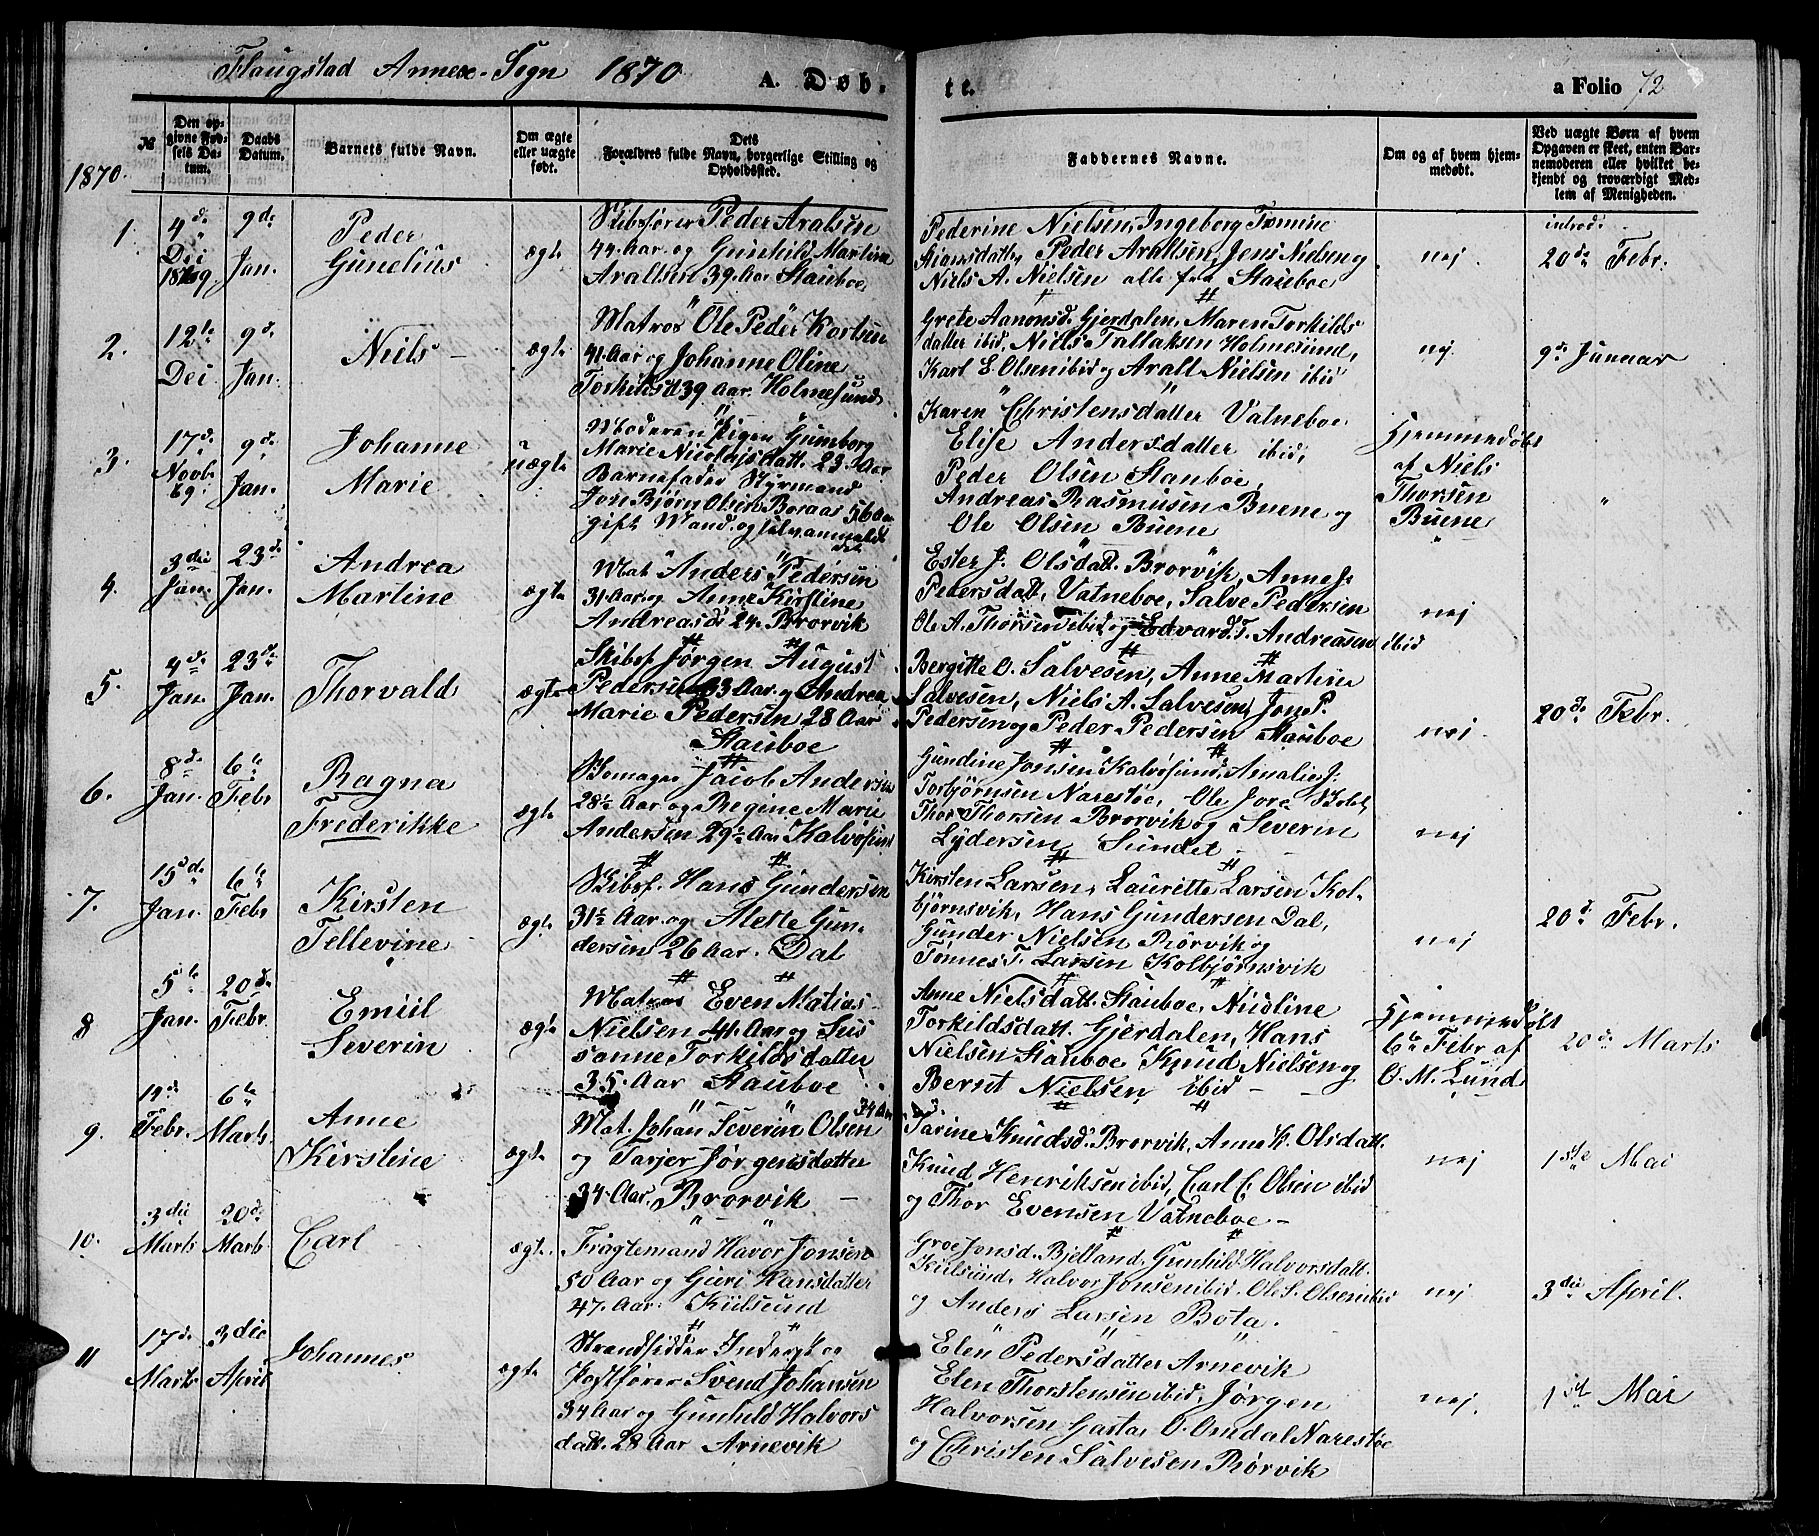 Flaugstad Annex-Sogn 1870
A. Døb-
te.
a Folio 72
1870.
№
Den op-
givne Fød-
sels Da-
tum.
Daabs
Datum.
Barnets fulde Navn.
Om ægte
eller uægte
født.
Dets
Forældres fulde Navn, borgerlige Stilling og
Opholdssted.
Faddernes Navne.
Om og af hvem hjem-
medøbt.
Ved uægte Børn af hvem
Opgaven er skeet, enten Bar-
nemoderen eller hvilket be-
kjendt og troværdigt Med-
lem af Menigheden.
1.
4de
Dei
1869.
9de
Jan.
Peder
Gunelius
ægte
Skibsfører Peder Aralsen
44 Aar og Gunhild Martine
Aralsen 39 Aar Stauboe
Pederine Nielsen, Ingeborg Tomine
Peder Araltsen, Jens Nielsen og
Niels A. Nielsen alle fra Stauboe
nej
introd:
20de Febr.
2.
12te
Dei
9de
Jan.
Niels
ægte
Matros Ole Peder
41 Aar og Johanne Oline
Torkildsd 39 Aar. Holmesund
Grete Aanonsd. Gjerdalen, Maren Torkilds
datter ibid, Niels Tallaksen Holmesund,
Karl E. Olsen ibid og Aralt Nielsen ibid
nej
9de Januar
3.
17de
Novbr
69.
9de
Jan.
Johanne
Marie
uægte
Moderen Pigen Gumborg
Marie Nicolajsdatt. 23 Aar
Barnefader Styrmand
Jon Bjørn Olsen Boraas 56 Aar
gift Mand og selv anmeldt
det
Karen Christensdatter Vatneboe
Elise Andersdatter ibid,
Peder Olsen Stauboe,
Andreas Rasmusen Buene og
Ole Olsen Buene
Hjemmedøbt
af Niels
Thorsen
Buene
"
4.
3die
Jan.
23de
Jan.
Andrea
Martine
ægte
Mat Anders Pedersen
31 Aar og Anne Kirstine
Andreasd. 24. Brorvik
Ester J. Olsdatt. Brorvik, Anne J.
Pedersdatt, Vatneboe, Salve Pedersen
Ole A. Thorsen ibid og Edvard T. Andreasen ibid
nej
5.
4de
Jan.
23de
Jan.
Thorvald
ægte
Skibsf. Jørgen August
Pedersen 33 Aar. og Andrea
Marie Pedersen 28 Aar
Stauboe
Bergitte O. Salvesen, Anne Martine
Salvesen, Niels A. Salvesen, Jon P.
Pedersen og Peder Pedersen Stauboe
nej
20de Febr.
6.
8de
Jan.
6te
Febr
Ragna
Frederikke
ægte
Skomager Jacob Andersen
28½ Aar og Regine Marie
Andersen 29½ Aar Kalvøsund
Gundine Jonsen Kalvøsund, Amalie J.
Torbjørnsen Narestøe, Ole Jore
Thor Thorsen Brorvik og Severin
Lydersen Sundet
nej
7.
15de
Jan.
6te
Febr
Kirsten
Tellevine
ægte
Skibsf. Hans Gundersen
31½ Aar og Alette Gun-
dersen 26 Aar. Dal
Kirsten Larsen, Lauritte Larsen Kol-
bjørnsvik, Hans Gundersen Dal,
Gunder Nielsen Rørvik og
Tønnes T. Larsen Kolbjørnsvik
nej
20de Febr.
8
5te
Jan.
20de
Febr.
Emiil
Severin
ægte
Matros Even Matias
Nielsen 41. Aar og Sus
sanne Torkildsdatter
35. Aar Stauboe
Anne Nielsdatt. Stauboe, Nicoline
Torkildsdatt. Gjerdalen, Hans
Nielsen Stauboe Knud Nielsen og
Bernt Nielsen ibid
Hjemmedøbt
6te Febr af
O. M. Lund
20de Marts
9.
Febr.
6te
Marts
Anne
Kirstine
ægte
34 Aar
Mat. Johan Severin Olsen
og Tarjer Jørgensdatter
34 Aar. Brorvik
Tarine Knudsd. Brorvik, Anne K. Olsdatt.
Knud Henriksen ibid, Carl C. Olsen ibid
og Thor Evensen Vatneboe
nej
1ste Mai
10.
3die
Marts
20de
Marts
Carl
ægte
Fragtemand Havor Jonsen
50 Aar og Guri Hansdatter
47. Aar. Kiilsund
Groe Jonsd. Bjelland, Gunhild Halvorsdatt.
Kiilsund, Halvor Jonsen ibid. Ole S. Olsen ibid
og Anders Larsen Bota.
nej
3die April.
11
17de
Marts
3die
April
Johannes
ægte
Strandsidder Inderst og
Postfører Svend Johansen
34 Aar og Gunhild Halvors
datt. 28 Aar Arnevik
Elen Pedersdatter Arnevik
Elen Thorstensen ibid, Jørgen
Halvorsen Garta, O. Omdal Narestøe
og Christen Salvesen Rørvik
nej
1ste Mai